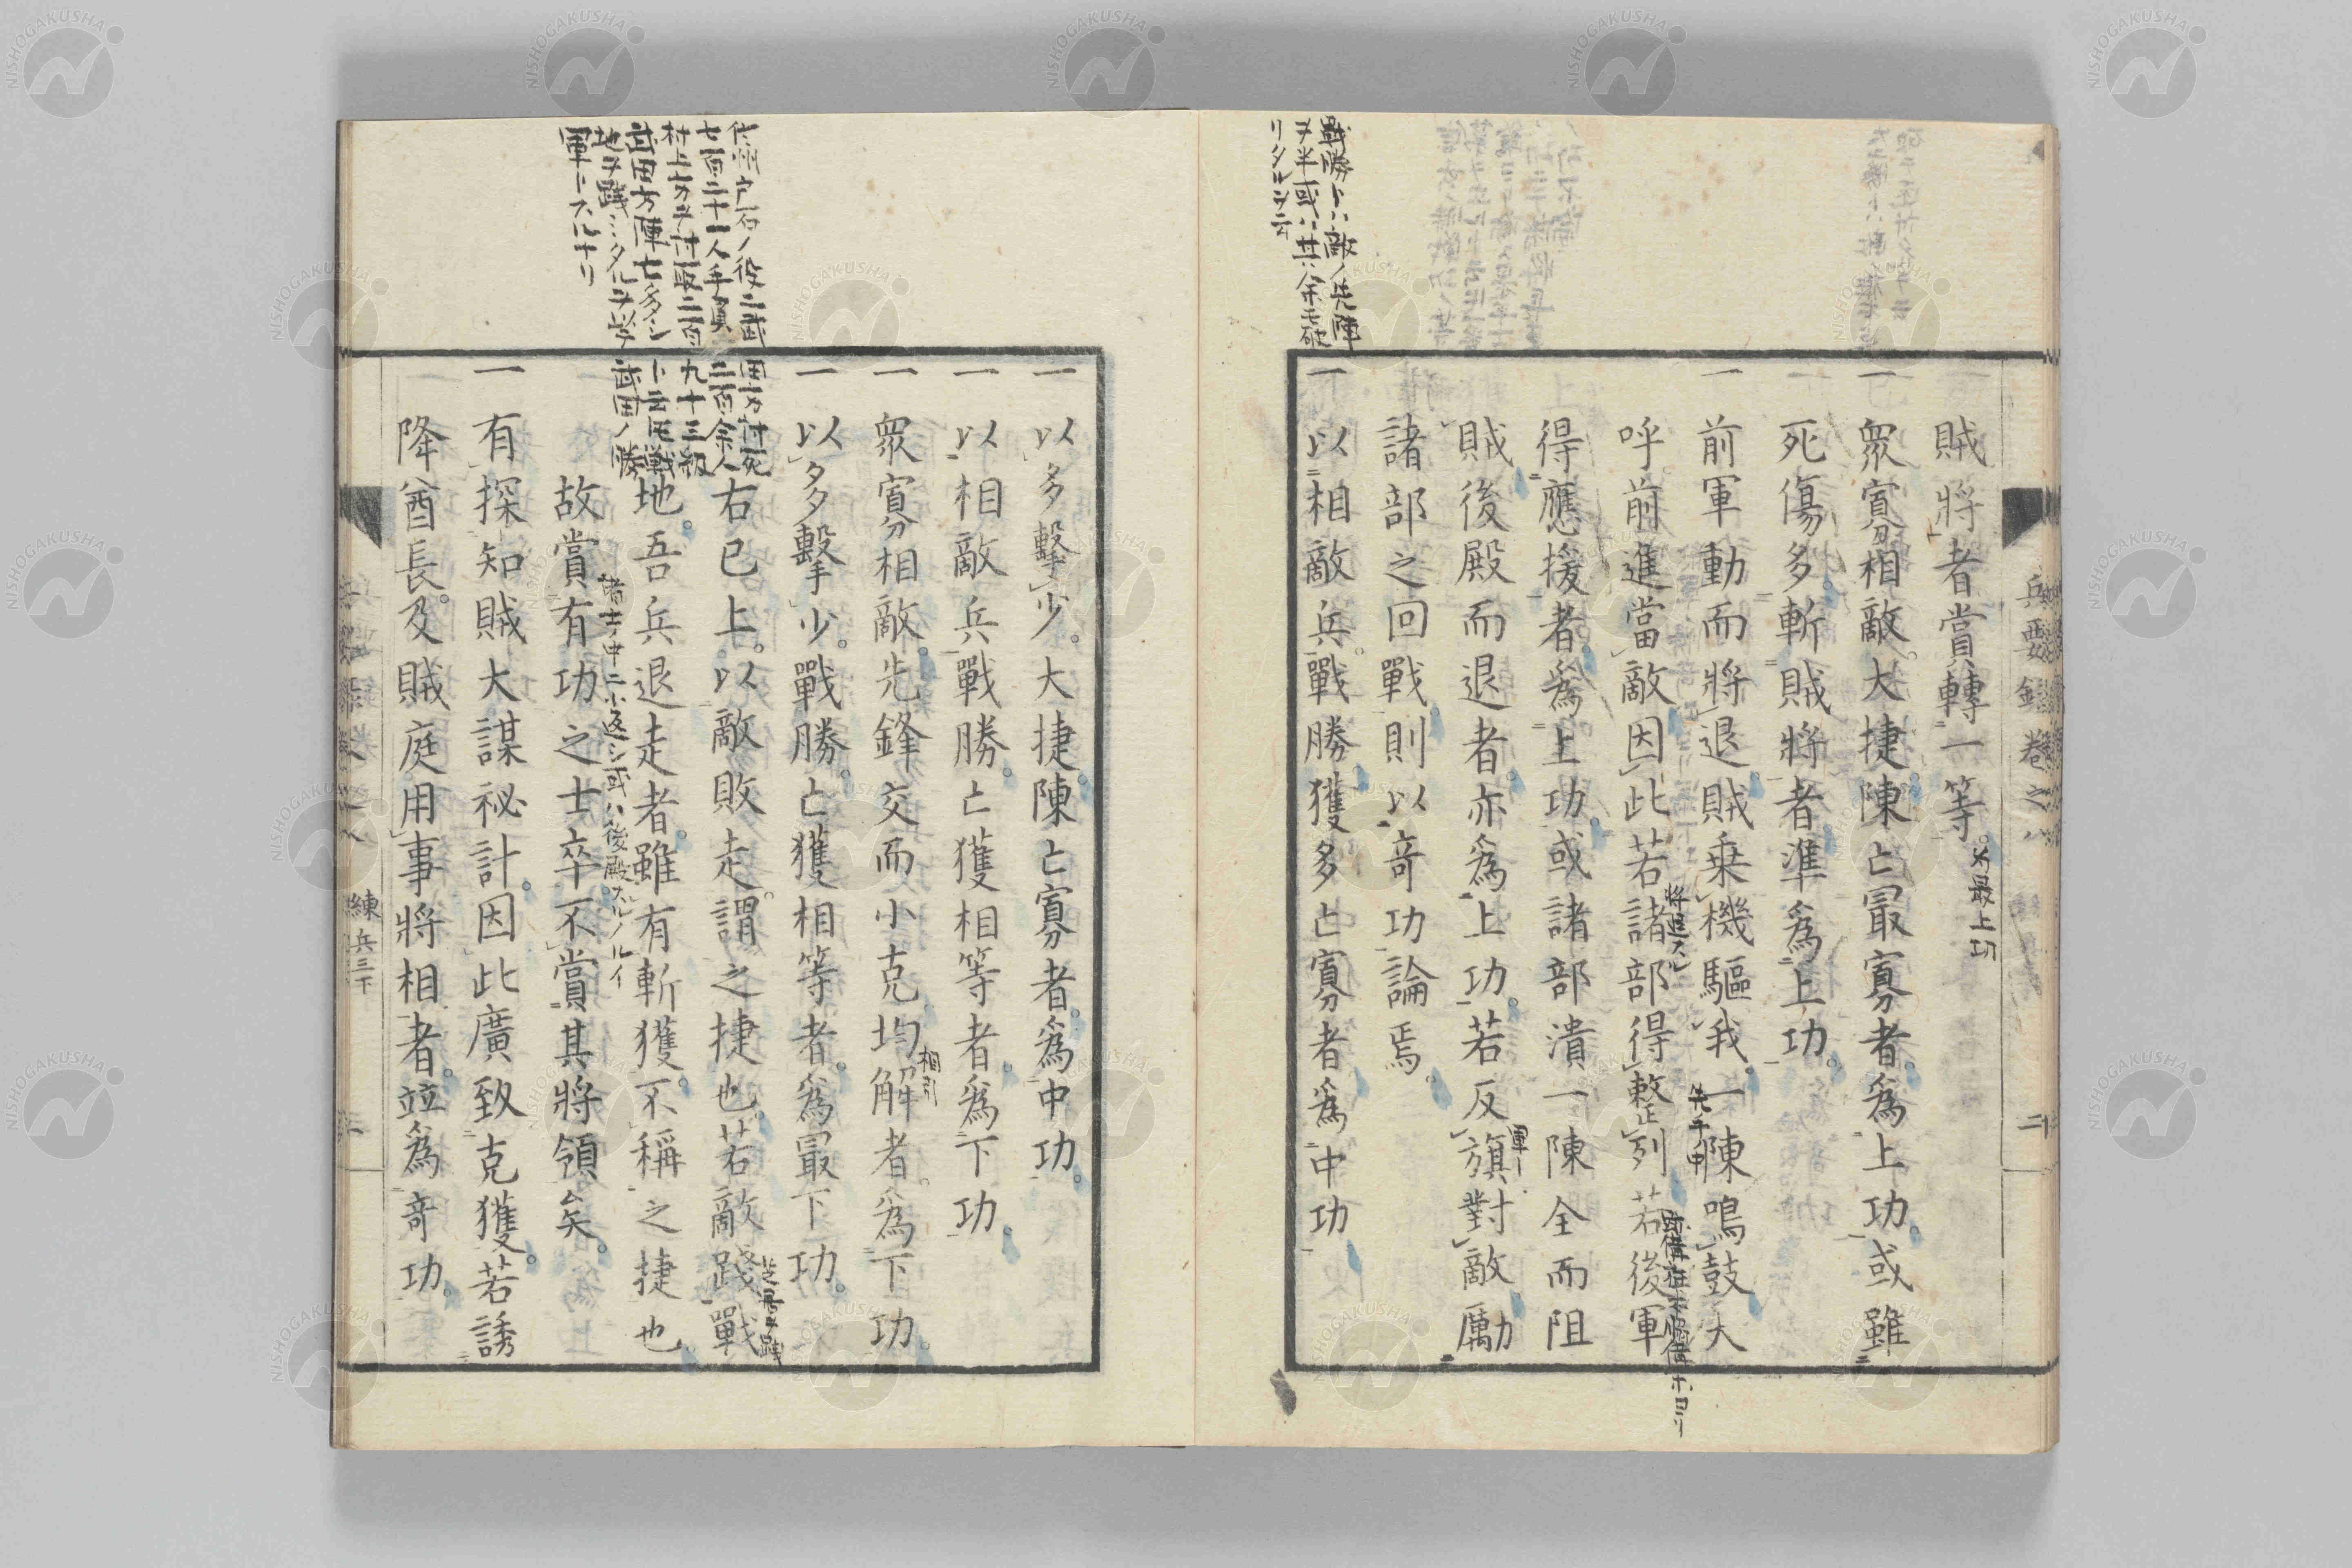 兵要録卷之八
二
賊將者賞轉一等。
最上功
一 衆寡相敵。大捷。陳亡最寡者。爲上功。或雖
死傷多。斬賊將者。準爲上功。
一 前軍動而將退。賊乗機驅我。一陳鳴鼓大
將退スル
先手ノ中
呼前進當敵。因此若諸部得整列。若後軍
得應援者。爲上功。或諸部潰一陳全而阻
賊後殿而退者。亦爲上功。若反旗對敵勵
諸部之回戰。則以竒功論焉。
戰勝トハ敵ノ先陣
ヲ半或ハ其余モ破
リタルヲ云
一 以相敵兵。戰勝獲多亡寡者爲中功
一 以多擊少。大捷。陳亡寡者。爲中功。
一 以相敵兵戰勝。亡獲相等者。爲下功。
一 衆寡相敵。先鋒交而小克均解者。爲下功。
相引
一 以多擊少。戰勝。亡獲相等者。爲最下功。
右已上。以敵敗走。謂之捷也。若敵踐戰
芝居ヲ踐
地。吾兵退走者。雖有斬獲。不稱之捷也。
諸士ノ中ニ小返シ或ハ後殿スルノルイ
故賞有功之士卒。不賞其將領矣。
武田方討死
七百二十一人手負二百余人
村上方ヲ討取二百九十三級
武田方陣七多シト云圧戰
地ヲ踐ミタルヲ以テ武田ノ勝
軍トスルナリ
一 有探知賊大謀祕計。因此廣致克獲。若誘
降酋長。及賊庭用事將相者。竝爲竒功。
練兵三下